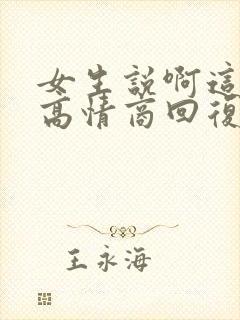 女生說啊這
高情商回復
王永海